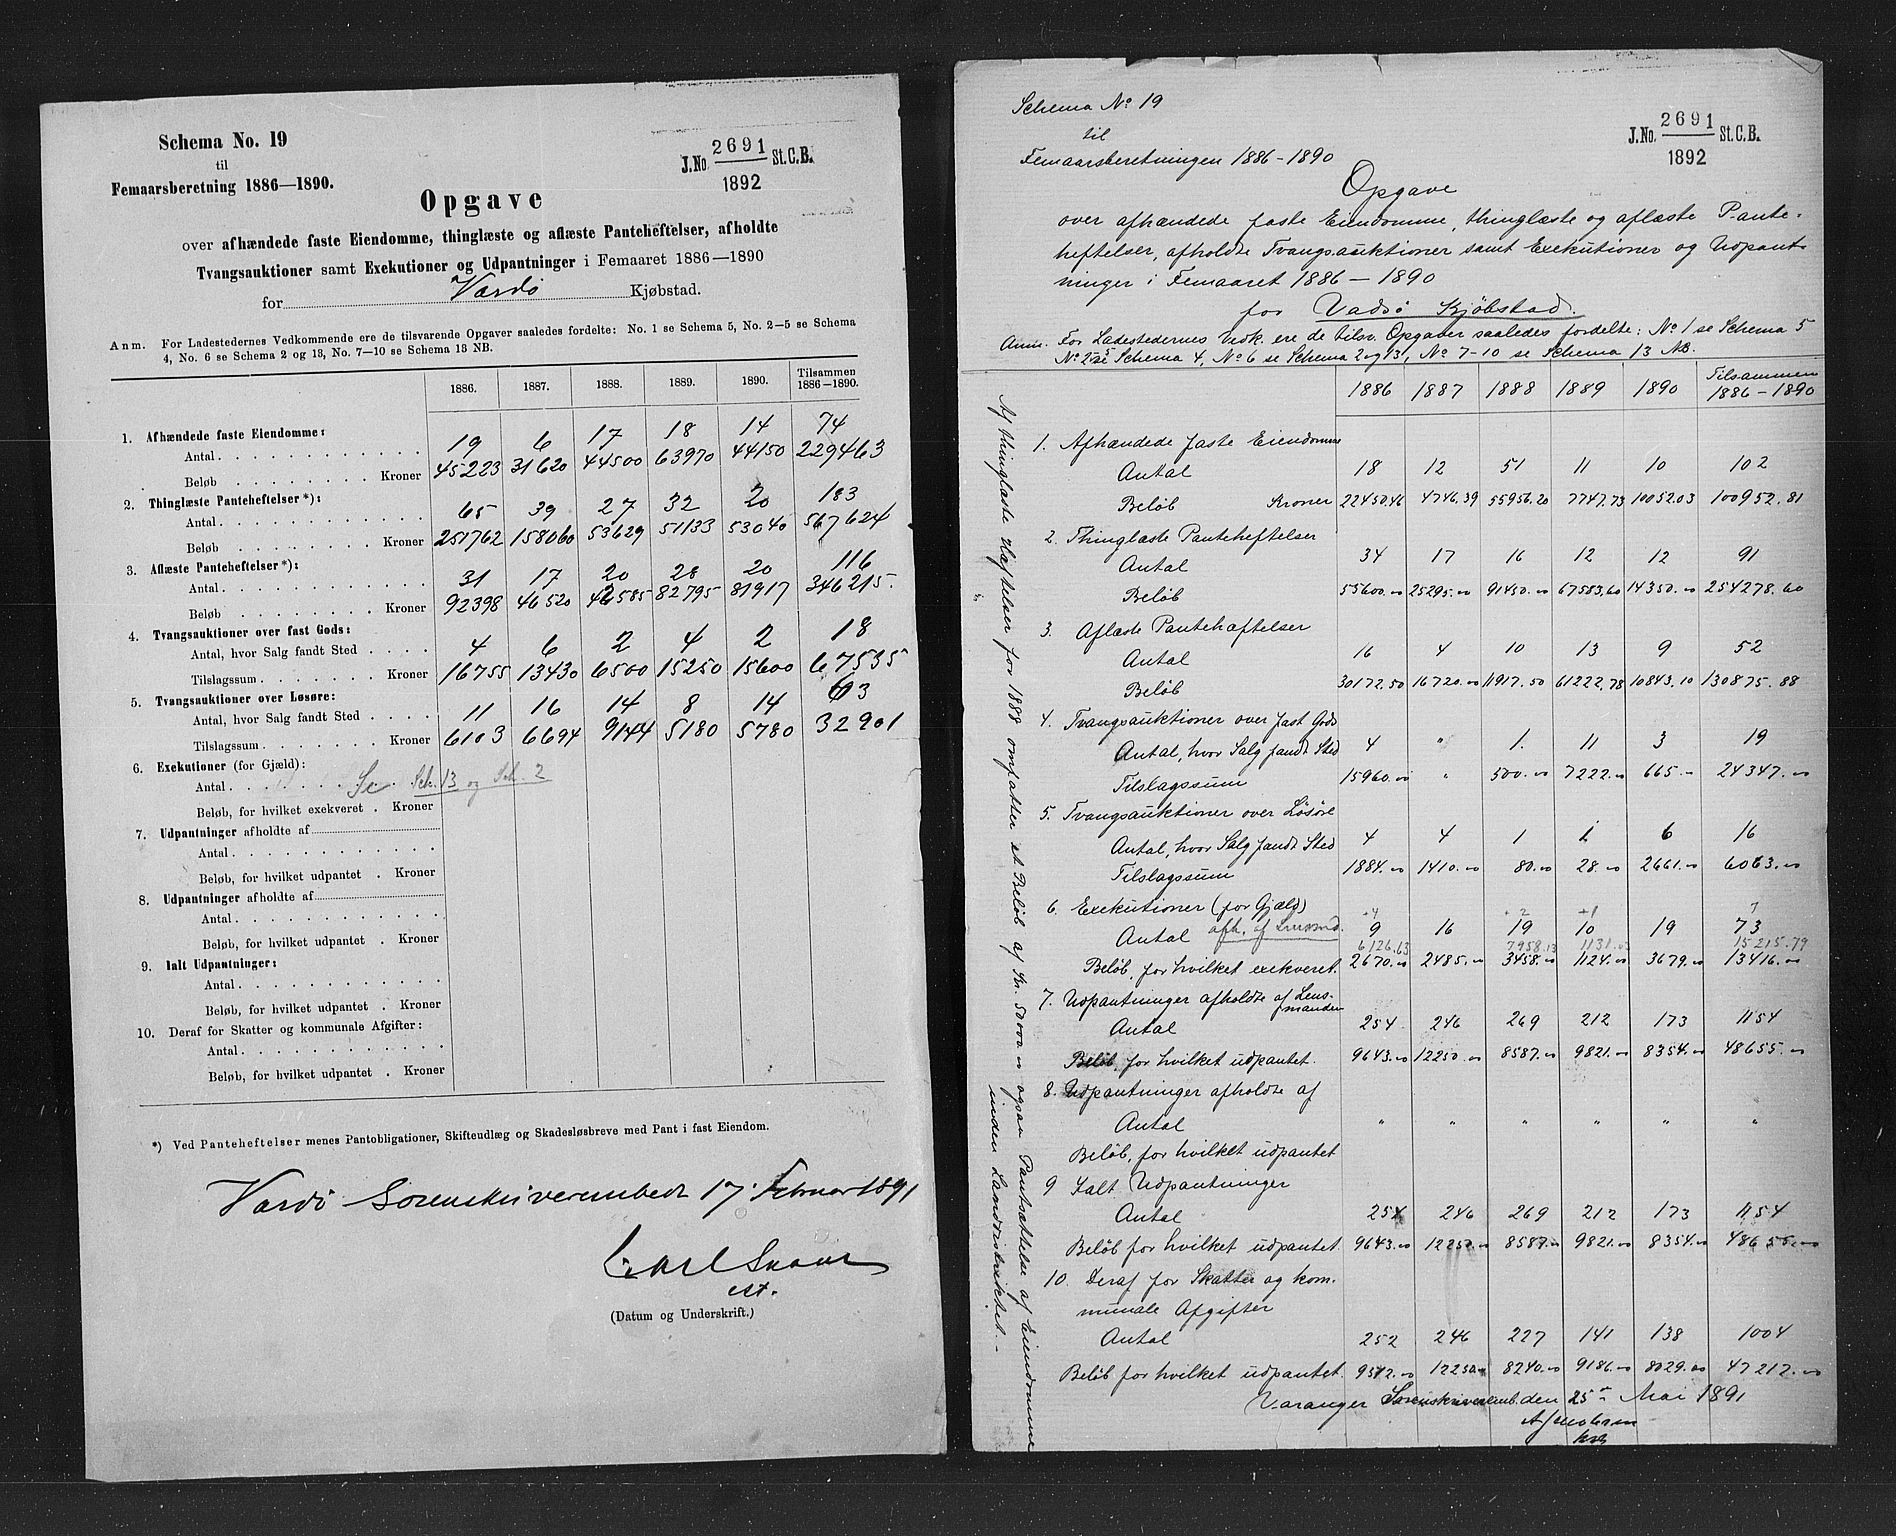 Schema No. 19
til
Femaarsberetning 1886—1890.
J.No. 2691 St.C.B.
1892
Opgave
over afhændede faste Eiendomme, thinglæste og aflæste Panteheftelser, afholdte
Tvangsauktioner samt Exekutioner og Udpantninger i Femaaret 1886—1890
for Vardö Kjøbstad.
Anm. For Ladestedernes Vedkommende ere de tilsvarende Opgaver saaledes fordelte: No. 1 se Schema 5, No. 2—5 se Schema
4, No. 6 se Schema 2 og 13, No. 7—10 se Schema 13 NB.
1886. 1887. 1888. 1889. 1890. Tilsammen 1886—1890.
1. Afhændede faste Eiendomme:
Antal 19 6 17 18 14 74
Beløb Kroner 45223 31620 44500 63970 44150 229463
2. Thinglæste Panteheftelser*):
Antal 65 39 27 32 20 183
Beløb Kroner 251762 158060 53629 51133 53040 567624
3. Aflæste Panteheftelser*):
Antal 31 17 20 28 20 116
Beløb Kroner 92398 46520 42585 82795 81917 346215.
4. Tvangsauktioner over fast Gods:
Antal, hvor Salg fandt Sted 4 6 2 4 2 18
Tilslagssum Kroner 16755 13430 6500 15250 15600 67535
5. Tvangsauktioner over Løsøre:
Antal, hvor Salg fandt Sted 11 16 14 8 14 63
Tilslagssum Kroner 6103 6694 9144 5180 5780 32901
6. Exekutioner (for Gjæld):
Antal Se Sch. 13 og Sch. 2
Beløb, for hvilket exekveret Kroner
7. Udpantninger afholdte af
Antal
Beløb, for hvilket udpantet Kroner
8. Udpantninger afholdte af
Antal
Beløb, for hvilket udpantet Kroner
9. Ialt Udpantninger:
Antal
Beløb, for hvilket udpantet Kroner
10. Deraf for Skatter og kommunale Afgifter:
Antal
Beløb, for hvilket udpantet Kroner
*) Ved Panteheftelser menes Pantobligationer, Skifteudlæg og Skadesløsbreve med Pant i fast Eiendom.
Vardö Sorenskriverembede 17. Februar 1891
Carl
cst.
(Datum og Underskrift.)
Schema No 19
til
Femaarsberetningen 1886–1890
J.No. 2691 St.C.B.
1892
Opgave
over afhændede faste Eiendomme, thinglæste og aflæste Pante-
heftelser, afholdte Tvangsauktioner samt Exekutioner og Udpant-
ninger i Femaaret 1886 – 1890
for Vadsö Kjöbstad.
Anm. For Ladestedernes Vedk. ere de tilsv. Opgaver saaledes fordelte: No 1 se Schema 5
No 2-5 se Schema 4, No 6 se Schema 2 og 13, No 7–10 se Schema 13 NB.
1886 1887 1888 1889 1890 Tilsammen 1886–1890
1. Afhændede faste Eiendomme
Antal 18 12 51 11 10 102
Beløb Kroner 22450.46 4746.39 55956.20 7747.73 10052.03 100952.81
2. Thinglæste Panteheftelser
Antal 34 17 16 12 12 91
Beløb 55600.00 25295.00 91450.00 67583.60 14350.00 254278.60
3. Aflæste Panteheftelser
Antal 16 4 10 13 9 52
Beløb 30172.50 16720.00 11917.50 61222.78 10843.10 130875.88
4. Tvangsauktioner over fast Gods
Antal, hvor Salg fandt Sted 4 " 1. 11 3 19
Tilslagssum 15960.00 " 500.00 7222.00 665.– 24347.00
5. Tvangsauktioner over Løsöre
Antal, hvor Salg fandt Sted 4 4 1 1 6 16
Tilslagssum 1884.00 1410.00 80.00 28.00 2661.00 6063.00
6. Exekutioner (for Gjæld)
+4 +2 +1 7
Antal afh. af Lensmd. 9 16 19 10 19 73
6126.63 7958.13 1131.03 15215.79
Beløb, for hvilket exekveret. 2670.00 2485.00 3458.00 1124.00 3679.00 13416.00
7. Udpantninger afholdte af Lens-
manden
Antal 254 246 269 212 173 1154
Beløb, for hvilket udpantet. 9643.00 12250.00 8587.00 9821.00 8354.00 48655.00
8. Udpantninger afholdte af
Antal " " " " " "
Beløb, for hvilket udpantet
9 Ialt Udpantninger
Antal 254 246 269 212 173 1154
Beløb for hvilket udpantet 9643.00 12250.00 8587.00 9821.00 8354.00 48655.00
10. Deraf for Skatter og kom-
munale Afgifter
Antal 252 246 227 141 138 1004
Beløb for hvilket udpantet. 9512.00 12250.00 8240.00 9186.00 8029.00 47212.00
Varanger Sorenskriveremb. den 25de Mai 1891
Af thinglæste Heftelser for 1888 omfatter et Beløb af Kr. 50000.00 ogsaa Pantsættelse af Eiendomme
inden Landdistriktet. –